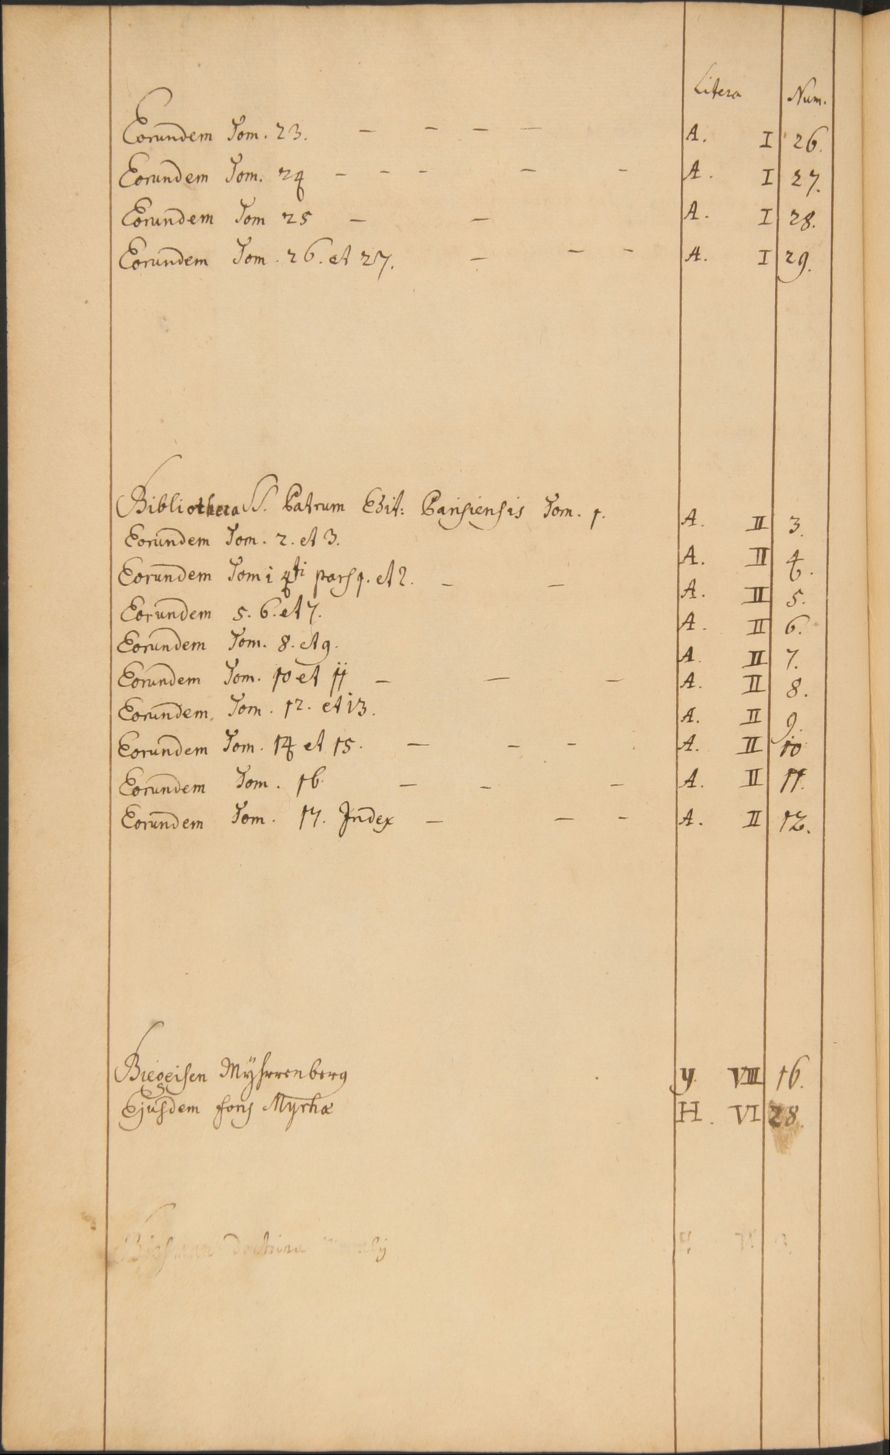 Litera Num.
Eorundem Tom. 23. — — — — A. I 26.
Eorundem Tom. 24 — — — — — A. I 27.
Eorundem Tom 25 — — A. I 28.
Eorundem Tom. 26. et 27. — — — A. I 29.
Bibliotheca SS. Patrum Edit: Parisiensis Tom. 1. A. II 3.
Eorundem Tom. 2. et 3. A. II 4.
Eorundem Tomi 4ti pars 1. et 2. — — A. II 5.
Eorundem 5. 6. et 7. A. II 6.
Eorundem Tom. 8. et 9. A. II 7.
Eorundem Tom. 10 et 11 — — — A. II 8.
Eorundem Tom. 12. et 13. A. II 9.
Eorundem Tom. 14 et 15. — — — A. II 10
Eorundem Tom. 16. — — — A. II 11.
Eorundem Tom. 17. Index — — — A. II 12.
Bieoeisen Myhrrenberg y. VIII 16.
Ejusdem fons Myrhæ H. VI 28.
Doctrina